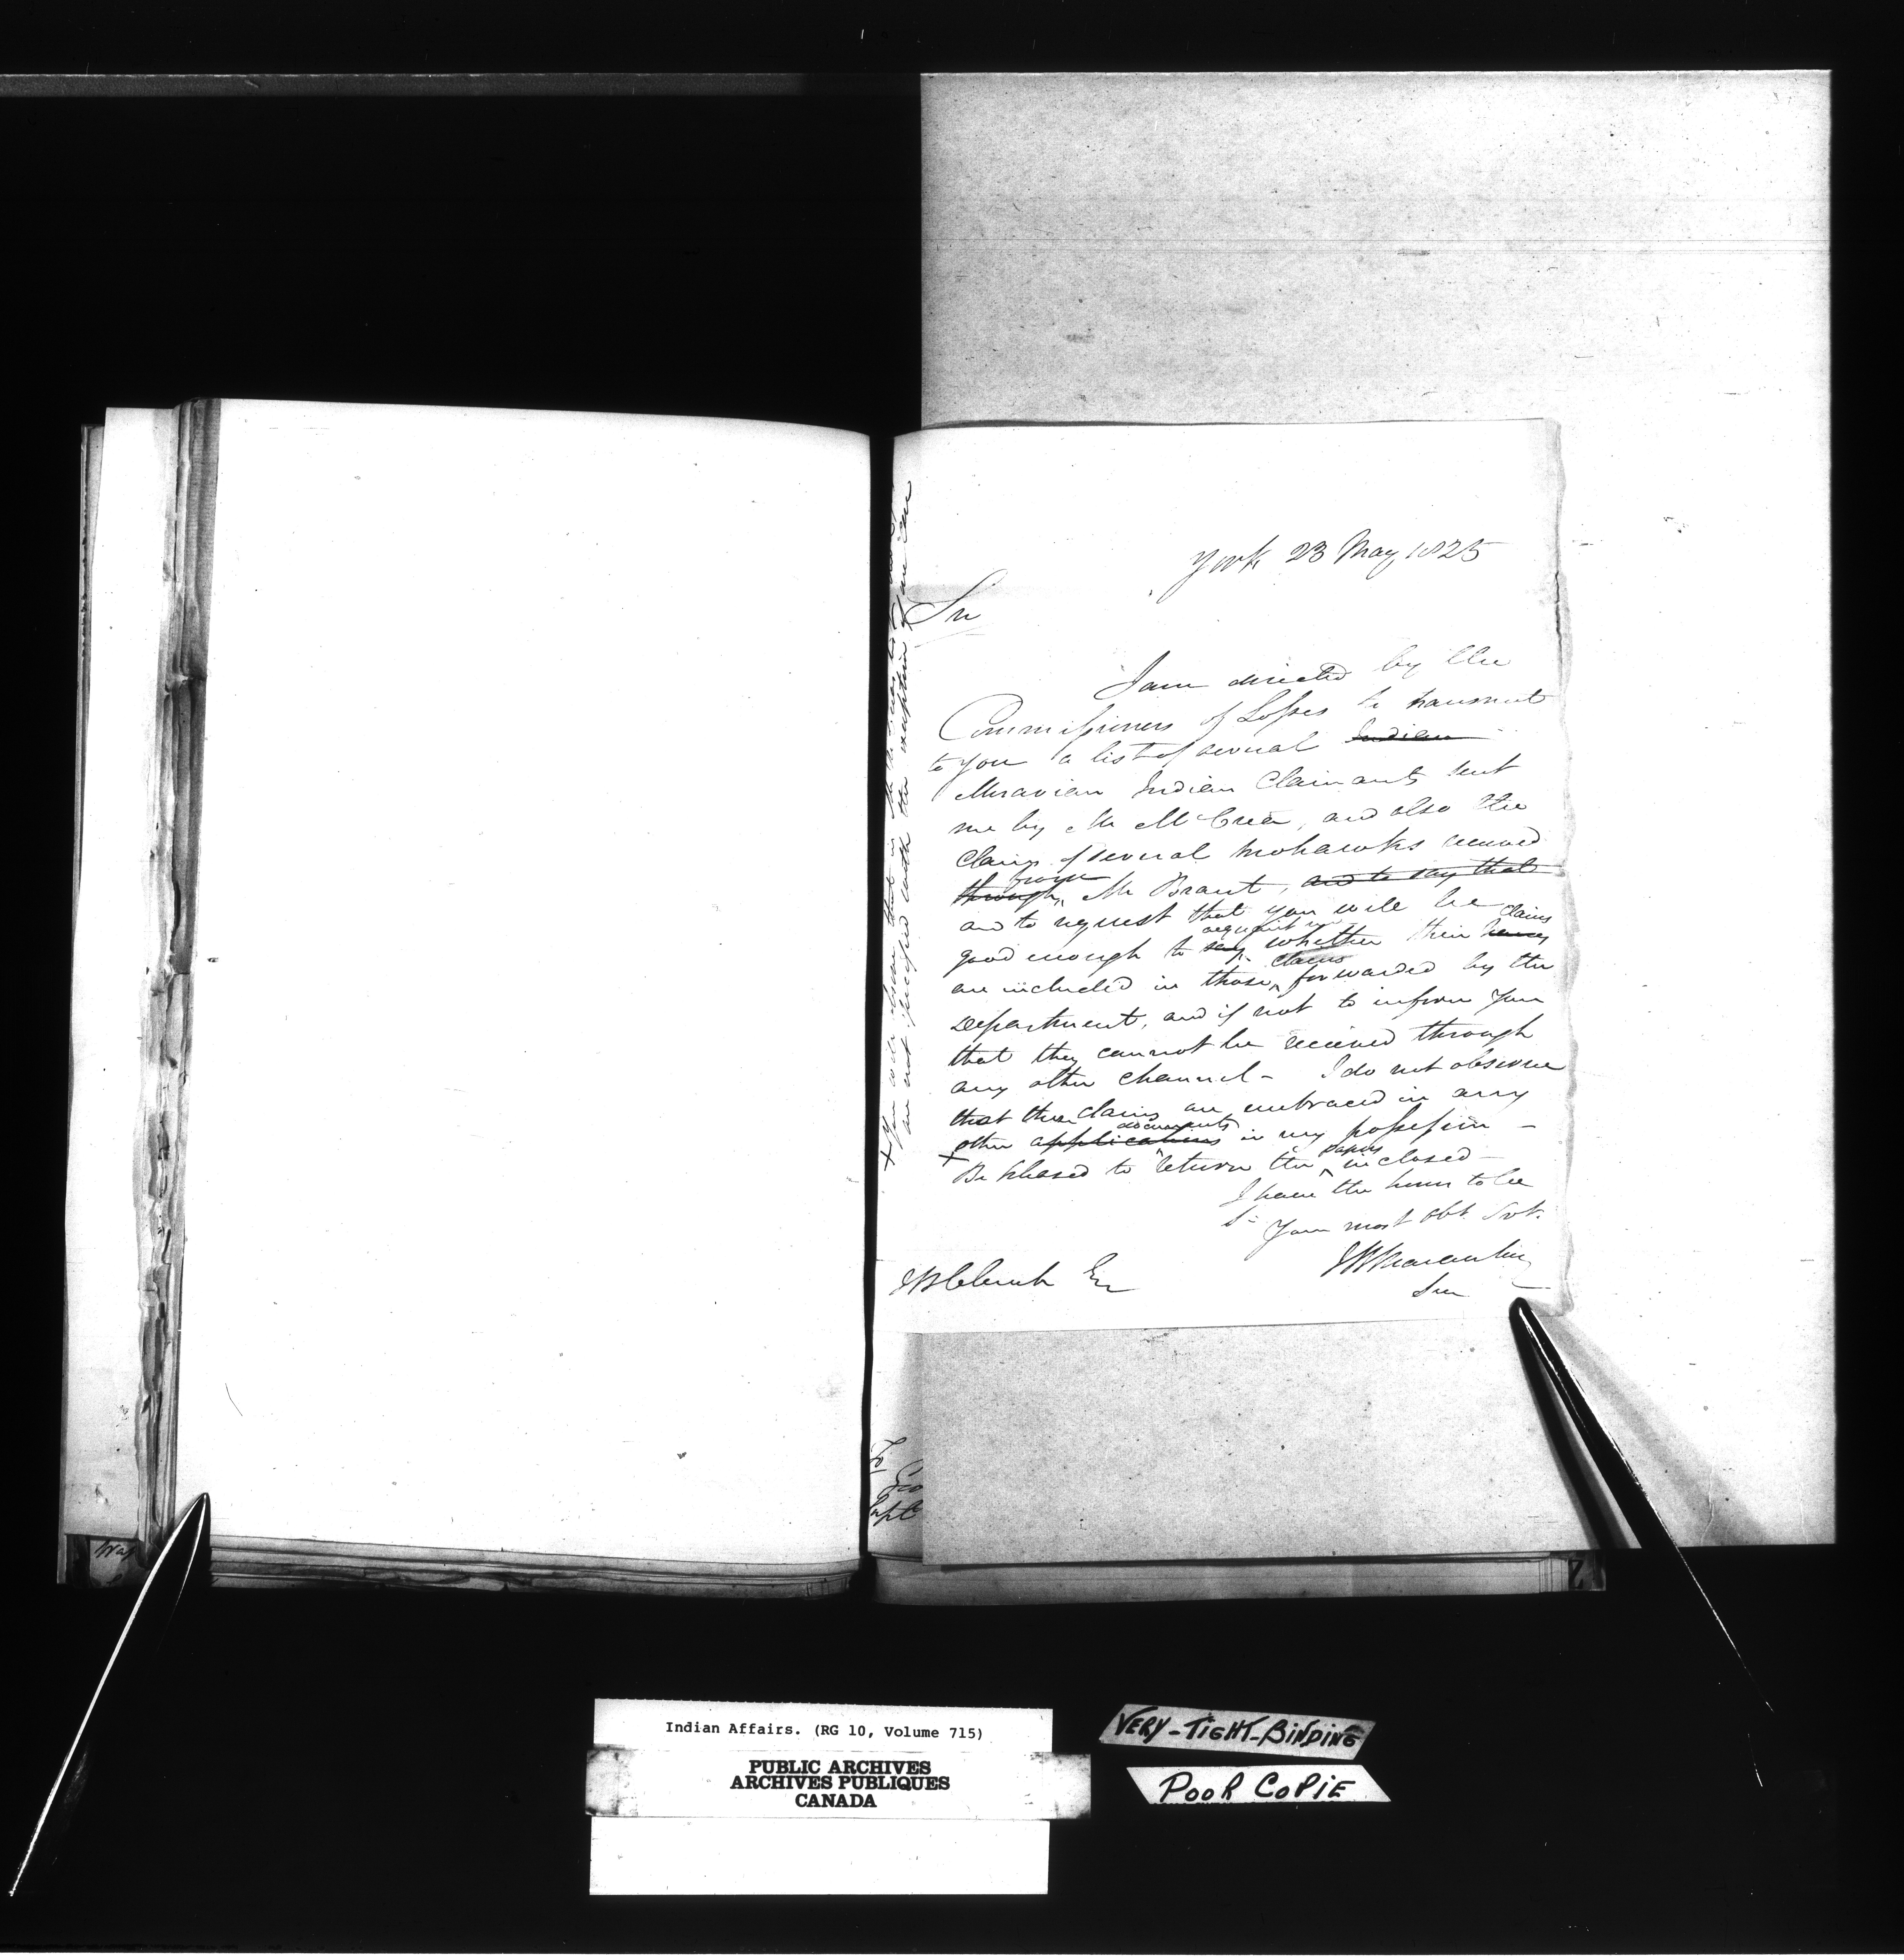 York 23 May 1825
Sir
I am directed by the
Commissioners of Losses to transmit
to you a list of several Indian
Moravian Indian Claimants sent
me by Mr McCrea, and also the
claims of several Mohawks received
from
through Mr Brant, and to say that
and to request that you will be
acquaint me claims
good enough to say whether their
claims
are included in those forwarded by the
Department, and if not to inform you
that they cannot be received through
any other channel - I do not observe
that these claims are embraced in any
documents
other applications in my possession -
papers
+ Be pleased to return the inclosed -
I have the honor to be
Sr Your most obt Svt.
Sec
Esq
+ You will
are not specified with the exception of one case
To
Geo
Capt
Indian Affairs. (RG 10, Volume 715)
PUBLIC ARCHIVES
ARCHIVES PUBLIQUES
CANADA
VERY-TIGHT-BINDING
POOR COPIE